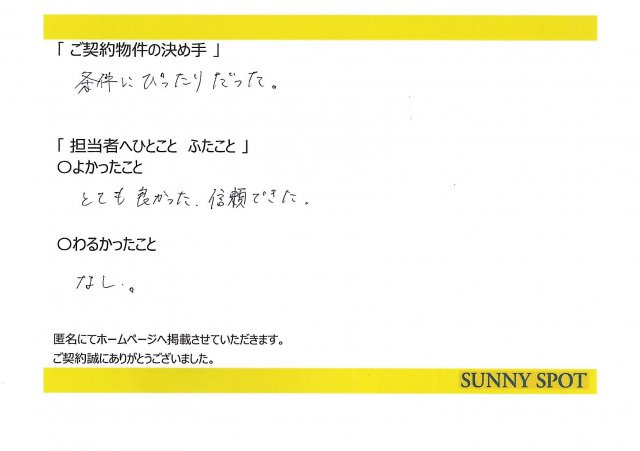 「 ご契約物件の決め手 」
条件にぴったりだった。
「 担当者へひとこと ふたこと 」
○よかったこと
とても良かった、信頼できた。
○わるかったこと
なし。
匿名にてホームページへ掲載させていただきます。
ご契約誠にありがとうございました。
SUNNY SPOT